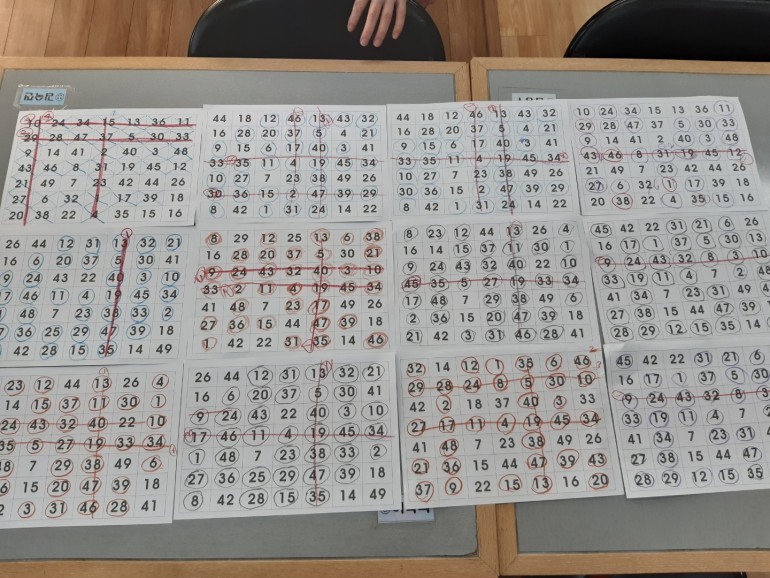 10 24 34 15 13 36 11
29 28 47 37 5 30 33
9 14 41 2 40 3 48
43 46 8 31 19 45 12
21 49 7 23 42 44 26
27 6 32 1 17 39 18
20 38 22 4 35 15 16
44 18 12 46 13 43 32
16 28 20 37 5 4 21
9 15 6 17 40 3 41
33 35 11 4 19 45 34
10 27 7 23 38 49 26
30 36 15 2 47 39 29
8 42 1 31 24 14 22
44 18 12 46 13 43 32
16 28 20 37 5 4 21
9 15 6 17 40 3 41
33 35 11 4 19 45 34
10 27 7 23 38 49 26
30 36 15 2 47 39 29
8 42 1 31 24 14 22
10 24 34 15 13 36 11
29 28 47 37 5 30 33
9 14 41 2 40 3 48
43 46 8 31 19 45 12
21 49 7 23 42 44 26
27 6 32 1 17 39 18
20 38 22 4 35 15 16
26 44 12 31 13 32 21
16 6 20 37 5 30 41
9 24 43 22 40 3 10
17 46 11 4 19 45 34
48 7 23 38 33 2
27 36 25 29 47 39 18
42 28 15 35 14 49
8 29 12 25 13 6 38
16 28 20 37 5 30 21
9 24 43 32 40 3 10
33 2 11 4 19 45 34
41 48 7 23 17 49 26
27 36 15 44 47 39 18
1 42 22 31 35 14 46
8 23 12 44 13 26 4
16 14 15 37 11 30 1
9 24 43 32 40 22 10
45 35 5 27 19 33 34
17 48 7 29 38 49 6
2 36 15 20 47 39 21
42 3 31 46 28 41
45 42 22 31 21 6 26
16 17 1 37 5 30 13
9 24 43 32 8 3 10
33 19 11 4 7 2 48
41 34 7 23 31
27 38 15 44 47
28 29 12 15 35 14
23 12 44 13 26 4
14 15 37 11 30 1
24 43 32 40 22 10
35 5 27 19 33 34
48 7 29 38 49 6
36 15 20 47 39 21
2 3 31 46 28 41
26 44 12 31 13 32 21
16 6 20 37 5 30 41
9 24 43 22 40 3 10
17 46 11 4 19 45 34
1 48 7 23 38 33 2
27 36 25 29 47 39 18
8 42 28 15 35 14 49
32 14 12 1 35 6 46
29 28 24 8 5 30 10
42 2 18 37 40 3 33
27 17 11 4 19 45 34
41 48 7 23 38 49 26
21 36 15 44 47 39 43
37 9 22 15 13 16 20
45 42 22 31 21 6
16 17 1 37 5 30
9 24 43 32 8 3
33 19 11 4 7 2
41 34 7 23 31
27 38 15 44 47
28 29 12 15 35